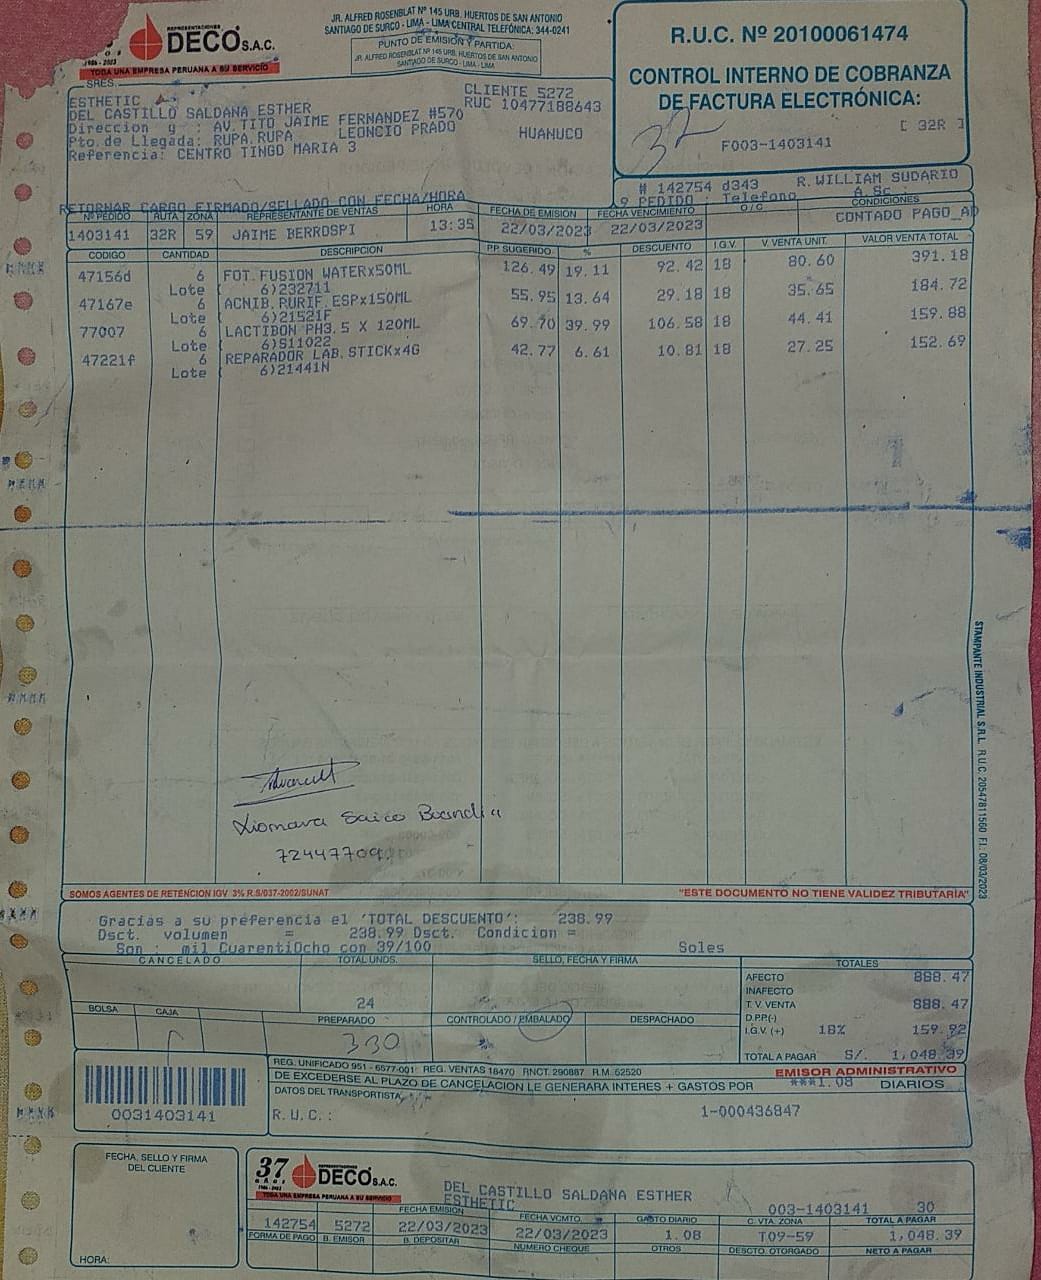 REPRESENTACIONES
DECO S.A.C.
1986 - 2023
TODA UNA EMPRESA PERUANA A SU SERVICIO
JR. ALFRED ROSENBLAT Nº 145 URB. HUERTOS DE SAN ANTONIO
SANTIAGO DE SURCO - LIMA - LIMA CENTRAL TELEFÓNICA: 344-0241
PUNTO DE EMISIÓN Y PARTIDA:
JR. ALFRED ROSENBLAT Nº 145 URB. HUERTOS DE SAN ANTONIO
SANTIAGO DE SURCO - LIMA - LIMA
R.U.C. Nº 20100061474
CONTROL INTERNO DE COBRANZA
DE FACTURA ELECTRÓNICA:
32
[ 32R ]
F003-1403141
SRES.
ESTHETIC
DEL CASTILLO SALDANA ESTHER
CLIENTE 5272
RUC 10477188643
Direccion y : AV. TITO JAIME FERNANDEZ #570
Pto. de Llegada: RUPA.RUPA LEONCIO PRADO HUANUCO
Referencia: CENTRO TINGO MARIA 3
# 142754 d343 R. WILLIAM SUDARIO
9 PEDIDO : Telefono A.Sc :
RETORNAR CARGO FIRMADO/SELLADO CON FECHA/HORA
Nº PEDIDO RUTA ZONA REPRESENTANTE DE VENTAS HORA FECHA DE EMISION FECHA VENCIMIENTO O/C CONDICIONES
1403141 32R 59 JAIME BERROSPI 13:35 22/03/2023 22/03/2023 CONTADO PAGO_AD
CODIGO CANTIDAD DESCRIPCION PP. SUGERIDO % DESCUENTO I.G.V. V. VENTA UNIT. VALOR VENTA TOTAL
47156d 6 FOT.FUSION WATERx50ML 126.49 19.11 92.42 18 80.60 391.18
Lote ( 6)232711
47167e 6 ACNIB.PURIF.ESPx150ML 55.95 13.64 29.18 18 35.65 184.72
Lote ( 6)21521F
77007 6 LACTIBON PH3.5 X 120ML 69.70 39.99 106.58 18 44.41 159.88
Lote ( 6)S11022
47221f 6 REPARADOR LAB.STICKx4G 42.77 6.61 10.81 18 27.25 152.69
Lote ( 6)21441N
STAMPANTE INDUSTRIAL S.R.L. R.U.C. 20547811560 F.I. 08/03/2023
SOMOS AGENTES DE RETENCION IGV 3% R.S/037-2002/SUNAT
"ESTE DOCUMENTO NO TIENE VALIDEZ TRIBUTARIA"
Gracias a su preferencia el 'TOTAL DESCUENTO': 238.99
Dsct. volumen = 238.99 Dsct. Condicion =
Son : mil CuarentiOcho con 39/100 Soles
CANCELADO TOTAL UNDS. SELLO, FECHA Y FIRMA TOTALES
24
AFECTO 888.47
INAFECTO
T. V. VENTA 888.47
D.P.P.(-)
I.G.V. (+) 18% 159.92
TOTAL A PAGAR S/. 1,048.39
BOLSA CAJA PREPARADO CONTROLADO / EMBALADO DESPACHADO
330
REG. UNIFICADO 951 - 6577-001 REG. VENTAS 18470 RNCT. 290887 R.M. 52520
EMISOR ADMINISTRATIVO
DE EXCEDERSE AL PLAZO DE CANCELACION LE GENERARA INTERES + GASTOS POR ***1.08 DIARIOS
DATOS DEL TRANSPORTISTA
R.U.C.: 1-000436847
0031403141
FECHA, SELLO Y FIRMA
DEL CLIENTE
HORA:
37
AÑOS
1986 - 2023
REPRESENTACIONES
DECO S.A.C.
TODA UNA EMPRESA PERUANA A SU SERVICIO
DEL CASTILLO SALDANA ESTHER
ESTHETIC
003-1403141 30
FECHA EMISIÓN FECHA VCMTO. GASTO DIARIO C. VTA. ZONA TOTAL A PAGAR
142754 5272 22/03/2023 22/03/2023 1.08 T09-59 1,048.39
FORMA DE PAGO B. EMISOR B. DEPOSITAR NÚMERO CHEQUE OTROS DESCTO. OTORGADO NETO A PAGAR